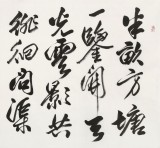 半亩方塘
一鑒開天
光雲影共
徘徊問渠